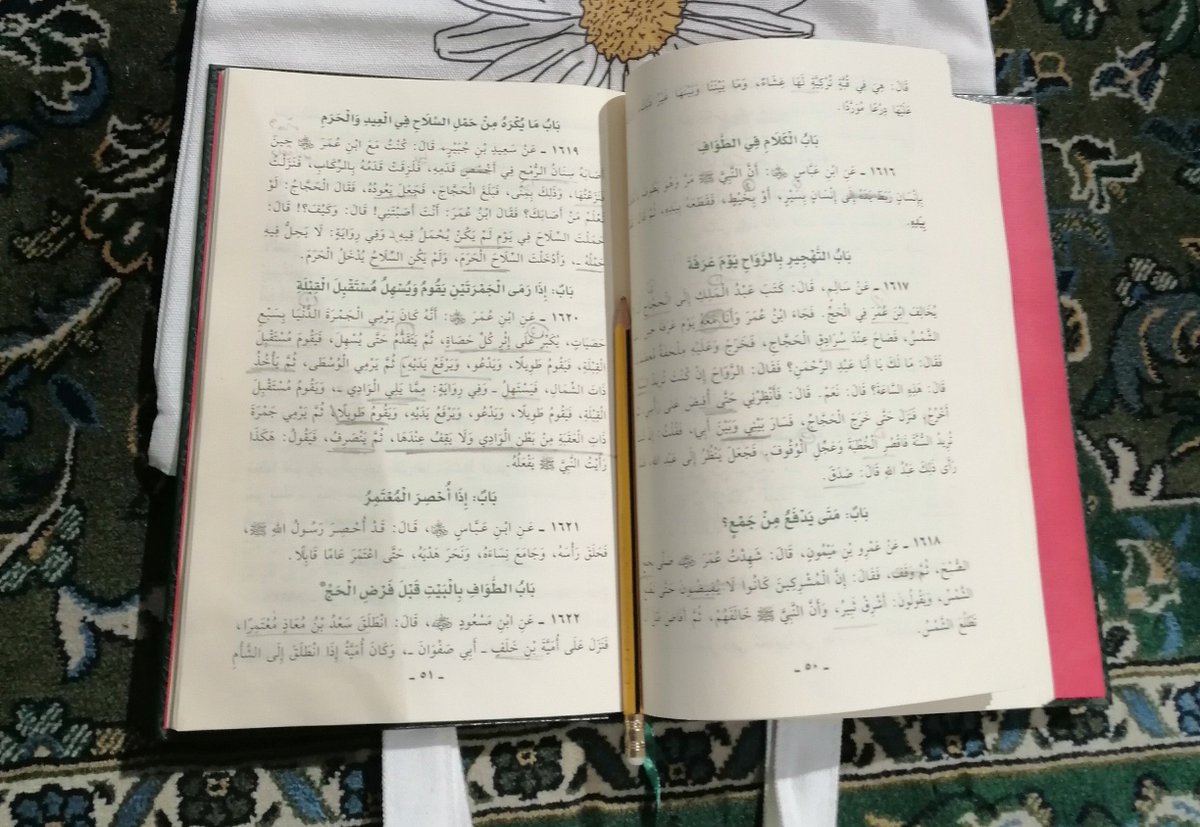 قَالَ: هِيَ فِي قُبَّةٍ تُرْكِيَّةٍ لَهَا غِشَاءٌ، وَمَا بَيْنَنَا وَبَيْنَهَا غَيْرُ ذَلِكَ
عَلَيْهَا دِرْعًا مُوَرَّدًا.
بَابُ الْكَلَامِ فِي الطَّوَافِ
١٦١٦ ـ عَنِ ابْنِ عَبَّاسٍ ﷺ: أَنَّ النَّبِيَّ ﷺ مَرَّ وَهُوَ يَطُوفُ
بِإِنْسَانٍ رَبَطَ يَدَهُ إِلَى إِنْسَانٍ بِسَيْرٍ، أَوْ بِخَيْطٍ، فَقَطَعَهُ بِيَدِهِ، ثُمَّ قَالَ
بِيَدِهِ.
بَابُ التَّهْجِيرِ بِالرَّوَاحِ يَوْمَ عَرَفَةَ
١٦١٧ ـ عَنْ سَالِمٍ، قَالَ: كَتَبَ عَبْدُ الْمَلِكِ إِلَى الْحَجَّاجِ
يُخَالِفَ ابْنَ عُمَرَ فِي الْحَجِّ. فَجَاءَ ابْنُ عُمَرَ وَأَنَا مَعَهُ يَوْمَ عَرَفَةَ حِينَ
الشَّمْسُ، فَصَاحَ عِنْدَ سُرَادِقِ الْحَجَّاجِ، فَخَرَجَ وَعَلَيْهِ مِلْحَفَةٌ
فَقَالَ: مَا لَكَ يَا أَبَا عَبْدِ الرَّحْمَنِ؟ فَقَالَ: الرَّوَاحَ إِنْ كُنْتَ تُرِيدُ
قَالَ: هَذِهِ السَّاعَةَ؟ قَالَ: نَعَمْ. قَالَ: فَأَنْظِرْنِي حَتَّى أُفِيضَ عَلَى رَأْسِي
أَخْرُجُ، فَنَزَلَ حَتَّى خَرَجَ الْحَجَّاجُ، فَسَارَ بَيْنِي وَبَيْنَ أَبِي، فَقُلْتُ: إِنْ
تُرِيدُ السُّنَّةَ فَاقْصُرِ الْخُطْبَةَ وَعَجِّلِ الْوُقُوفَ. فَجَعَلَ يَنْظُرُ إِلَى عَبْدِ اللهِ،
رَأَى ذَلِكَ عَبْدُ اللهِ قَالَ: صَدَقَ.
بَابٌ: مَتَى يَدْفَعُ مِنْ جَمْعٍ؟
١٦١٨ ـ عَنْ عَمْرِو بْنِ مَيْمُونٍ، قَالَ: شَهِدْتُ عُمَرَ صَلَّى
الصُّبْحَ، ثُمَّ وَقَفَ، فَقَالَ: إِنَّ الْمُشْرِكِينَ كَانُوا لَا يُفِيضُونَ حَتَّى
الشَّمْسُ، وَيَقُولُونَ: أَشْرِقْ ثَبِيرُ، وَأَنَّ النَّبِيَّ ﷺ خَالَفَهُمْ، ثُمَّ أَفَاضَ قَبْلَ
تَطْلُعَ الشَّمْسُ.
ـ ٥٠ ـ
بَابُ مَا يُكْرَهُ مِنْ حَمْلِ السِّلَاحِ فِي الْعِيدِ وَالْحَرَمِ
١٦١٩ ـ عَنْ سَعِيدِ بْنِ جُبَيْرٍ، قَالَ: كُنْتُ مَعَ ابْنِ عُمَرَ حِينَ
أَصَابَهُ سِنَانُ الرُّمْحِ فِي أَخْمَصِ قَدَمِهِ، فَلَزِقَتْ قَدَمُهُ بِالرِّكَابِ، فَنَزَلْتُ
فَنَزَعْتُهَا، وَذَلِكَ بِمِنًى، فَبَلَغَ الْحَجَّاجَ، فَجَعَلَ يَعُودُهُ، فَقَالَ الْحَجَّاجُ: لَوْ
نَعْلَمُ مَنْ أَصَابَكَ؟ فَقَالَ ابْنُ عُمَرَ: أَنْتَ أَصَبْتَنِي! قَالَ: وَكَيْفَ؟! قَالَ:
حَمَلْتَ السِّلَاحَ فِي يَوْمٍ لَمْ يَكُنْ يُحْمَلُ فِيهِ ـ وَفِي رِوَايَةٍ: لَا يَحِلُّ فِيهِ
حَمْلُهُ ـ، وَأَدْخَلْتَ السِّلَاحَ الْحَرَمَ، وَلَمْ يَكُنِ السِّلَاحُ يُدْخَلُ الْحَرَمَ.
بَابٌ: إِذَا رَمَى الْجَمْرَتَيْنِ يَقُومُ وَيُسْهِلُ مُسْتَقْبِلَ الْقِبْلَةِ
١٦٢٠ ـ عَنِ ابْنِ عُمَرَ: أَنَّهُ كَانَ يَرْمِي الْجَمْرَةَ الدُّنْيَا بِسَبْعِ
حَصَيَاتٍ، يُكَبِّرُ عَلَى إِثْرِ كُلِّ حَصَاةٍ، ثُمَّ يَتَقَدَّمُ حَتَّى يُسْهِلَ، فَيَقُومُ مُسْتَقْبِلَ
الْقِبْلَةِ، فَيَقُومُ طَوِيلًا، وَيَدْعُو، وَيَرْفَعُ يَدَيْهِ، ثُمَّ يَرْمِي الْوُسْطَى، ثُمَّ يَأْخُذُ
ذَاتَ الشِّمَالِ، فَيَسْتَهِلُ ـ وَفِي رِوَايَةٍ: مِمَّا يَلِي الْوَادِيَ ـ، وَيَقُومُ مُسْتَقْبِلَ
الْقِبْلَةِ، فَيَقُومُ طَوِيلًا، وَيَدْعُو، وَيَرْفَعُ يَدَيْهِ، وَيَقُومُ طَوِيلًا، ثُمَّ يَرْمِي جَمْرَةَ
ذَاتِ الْعَقَبَةِ مِنْ بَطْنِ الْوَادِي وَلَا يَقِفُ عِنْدَهَا، ثُمَّ يَنْصَرِفُ، فَيَقُولُ: هَكَذَا
رَأَيْتُ النَّبِيَّ ﷺ يَفْعَلُهُ.
بَابٌ: إِذَا أُحْصِرَ الْمُعْتَمِرُ
١٦٢١ ـ عَنِ ابْنِ عَبَّاسٍ، قَالَ: قَدْ أُحْصِرَ رَسُولُ اللهِ ﷺ،
فَحَلَقَ رَأْسَهُ، وَجَامَعَ نِسَاءَهُ، وَنَحَرَ هَدْيَهُ، حَتَّى اعْتَمَرَ عَامًا قَابِلًا.
بَابُ الطَّوَافِ بِالْبَيْتِ قَبْلَ فَرْضِ الْحَجِّ
١٦٢٢ ـ عَنِ ابْنِ مَسْعُودٍ، قَالَ: انْطَلَقَ سَعْدُ بْنُ مُعَاذٍ مُعْتَمِرًا،
فَنَزَلَ عَلَى أُمَيَّةَ بْنِ خَلَفٍ ـ أَبِي صَفْوَانَ ـ، وَكَانَ أُمَيَّةُ إِذَا انْطَلَقَ إِلَى الشَّأْمِ
ـ ٥١ ـ